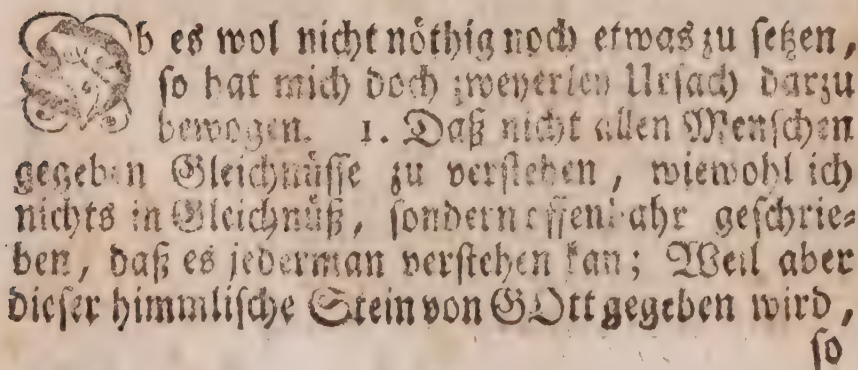 Ob es wol nicht nöthig noch etwas zu setzen,
so hat mich doch zweyerley Ursach darzu
bewogen. 1. Daß nicht allen Menschen
gegeben Gleichnüsse zu verstehen, wiewohl ich
nichts in Gleichnüß, sondern offenbahr geschrie⸗
ben, daß es jederman verstehen kan; Weil aber
dieser himmlische Stein von GOtt gegeben wird,
so